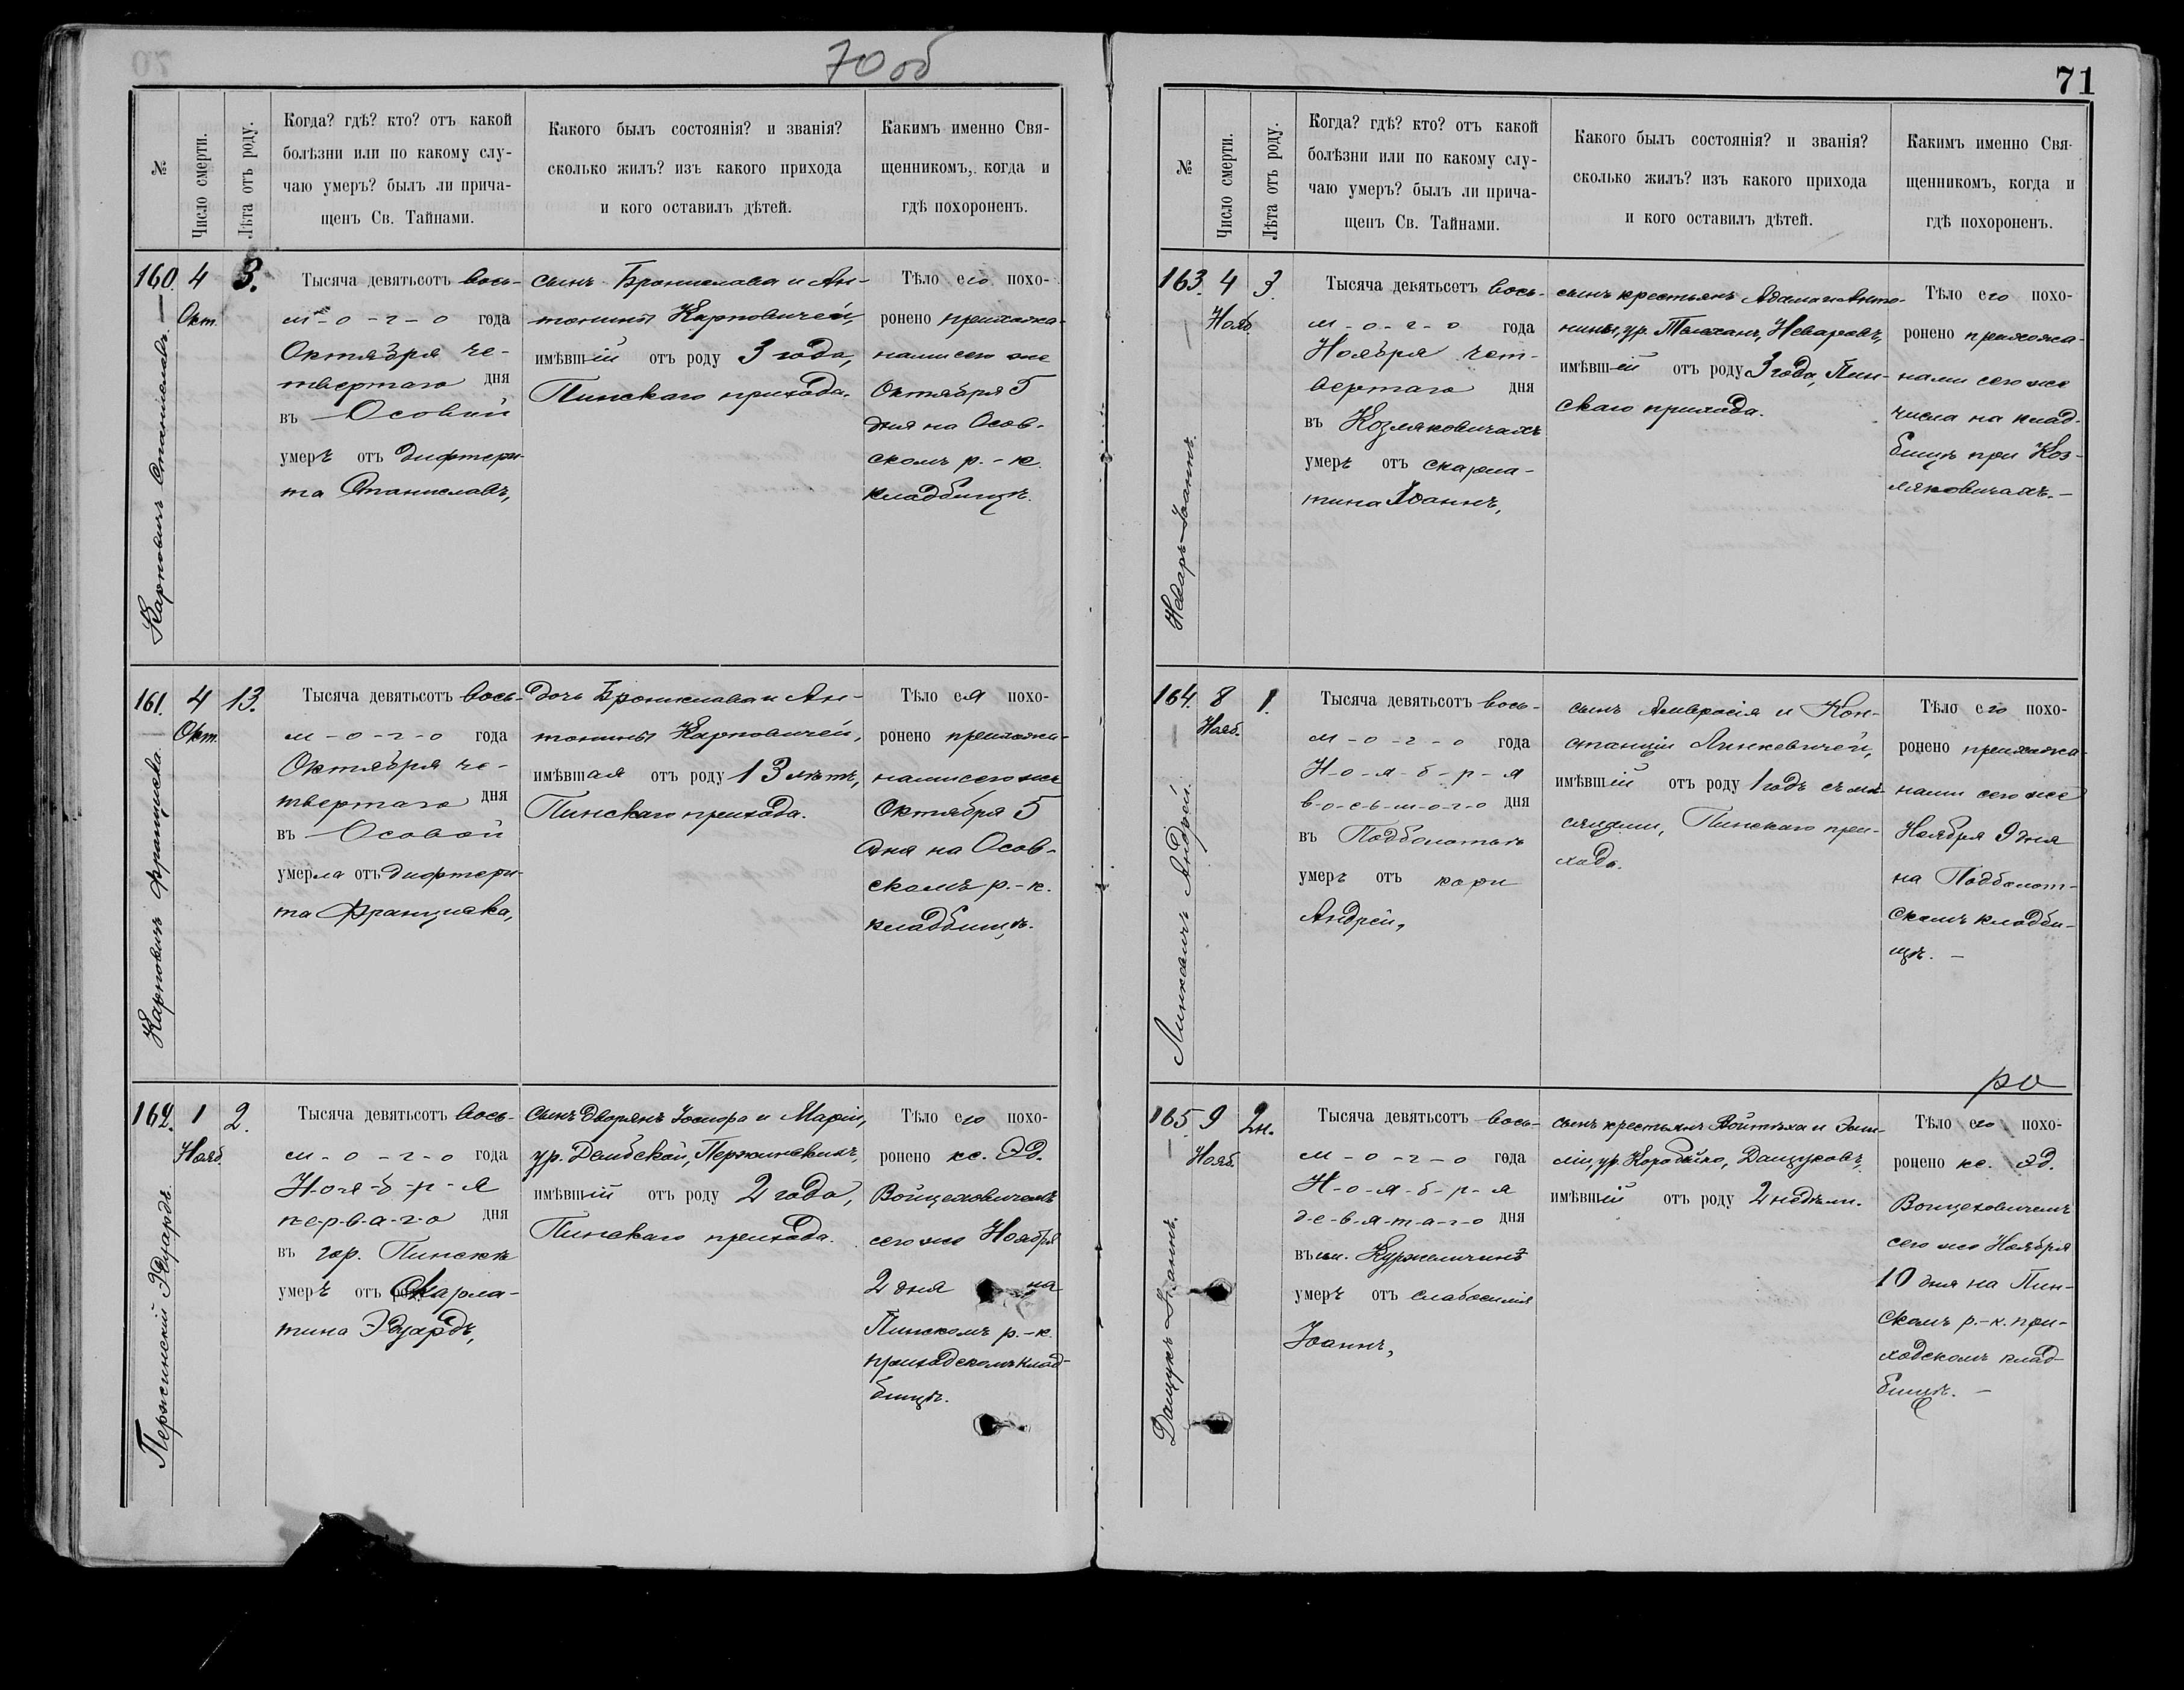 70 об
№
Число смерти.
Лѣта отъ роду.
Когда? гдѣ? кто? отъ какой
болѣзни или по какому слу-
чаю умеръ? былъ ли прича-
щенъ Св. Тайнами.
Какого былъ состоянія? и званія?
сколько жилъ? изъ какого прихода
и кого оставилъ дѣтей.
Какимъ именно Свя-
щенникомъ, когда и
гдѣ похороненъ.
160.
Карповичъ Станиславъ.
4
Окт.
3.
Тысяча девятьсотъ вось-
м-о-г-о года
Октября че-
твертаго дня
въ Осовой
умеръ отъ дифтери-
та Станиславъ,
сынъ Бронислава и Ан-
тонины Карповичей,
имѣвшій отъ роду 3 года,
Пинскаго прихода.
Тѣло его похо-
ронено прихожа-
нами сего же
Октября 5
дня на Осов-
скомъ р.-к.
кладбищѣ.
161.
Карповичъ Франциска.
4
Окт.
13.
Тысяча девятьсотъ вось-
м-о-г-о года
Октября че-
твертаго дня
въ Осовой
умерла отъ дифтери-
та Франциска,
дочь Бронислава и Ан-
тонины Карповичей,
имѣвшая отъ роду 13 лѣтъ,
Пинскаго прихода.
Тѣло ея похо-
ронено прихожа-
нами сего же
Октября 5
дня на Осов-
скомъ р.-к.
кладбищѣ.
162.
Пержинскій Эдуардъ.
1
Нояб.
2.
Тысяча девятьсотъ вось-
м-о-г-о года
Н-о-я-б-р-я
п-е-р-в-а-г-о дня
въ гор. Пинскѣ
умеръ отъ скарла-
тина Эдуардъ,
сынъ дворянъ Іосифа и Маріи,
ур. Дембской, Пержинскихъ,
имѣвшій отъ роду 2 года,
Пинскаго прихода.
Тѣло его похо-
ронено кс. Эд.
Войцеховичемъ
сего же Ноября
2 дня на
Пинскомъ р.-к.
приходскомъ клад-
бищѣ.
71
№
Число смерти.
Лѣта отъ роду.
Когда? гдѣ? кто? отъ какой
болѣзни или по какому слу-
чаю умеръ? былъ ли прича-
щенъ Св. Тайнами.
Какого былъ состоянія? и званія?
сколько жилъ? изъ какого прихода
и кого оставилъ дѣтей.
Какимъ именно Свя-
щенникомъ, когда и
гдѣ похороненъ.
163.
Неваръ Іоаннъ.
4
Нояб.
3.
Тысяча девятьсотъ вось-
м-о-г-о года
Ноября чет-
вертаго дня
въ Козляковичахъ
умеръ отъ скарла-
тина Іоаннъ,
сынъ крестьянъ Адама и Анто-
нины, ур. Неваровъ,
имѣвшій отъ роду 3 года, Пин-
скаго прихода.
Тѣло его похо-
ронено прихожа-
нами сего же
числа на клад-
бищѣ при Коз-
ляковичахъ.-
164.
Линкевичъ Андрей.
8
Нояб.
1.
Тысяча девятьсотъ вось-
м-о-г-о года
Н-о-я-б-р-я
в-о-с-ь-м-о-г-о дня
въ Подболотьѣ
умеръ отъ кори
Андрей,
сынъ Амвросія и Кон-
станціи Линкевичей,
имѣвшій отъ роду 1 годъ съ мѣ-
сяцами, Пинскаго при-
хода.
Тѣло его похо-
ронено прихожа-
нами сего же
Ноября 9 дня
на Подболот-
скомъ кладби-
щѣ. -
ро
165.
Дащукъ Іоаннъ.
9
Нояб.
2 н.
Тысяча девятьсотъ вось-
м-о-г-о года
Н-о-я-б-р-я
д-е-в-я-т-а-г-о дня
въ им.
умеръ отъ слабосилія
Іоаннъ,
сынъ крестьянъ Войтѣха и Эми-
ліи, ур. Коробейко, Дащуковъ,
имѣвшій отъ роду 2 недѣли.
Тѣло его похо-
ронено кс. Эд.
Войцеховичемъ
сего же Ноября
10 дня на Пин-
скомъ р.-к. при-
ходскомъ клад-
бищѣ. -